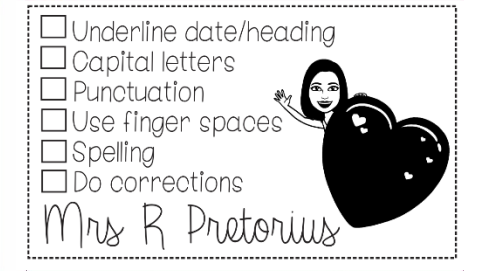 Underline date/heading
Capital letters
Punctuation
Use finger spaces
Spelling
Do corrections
Mrs R Pretorius